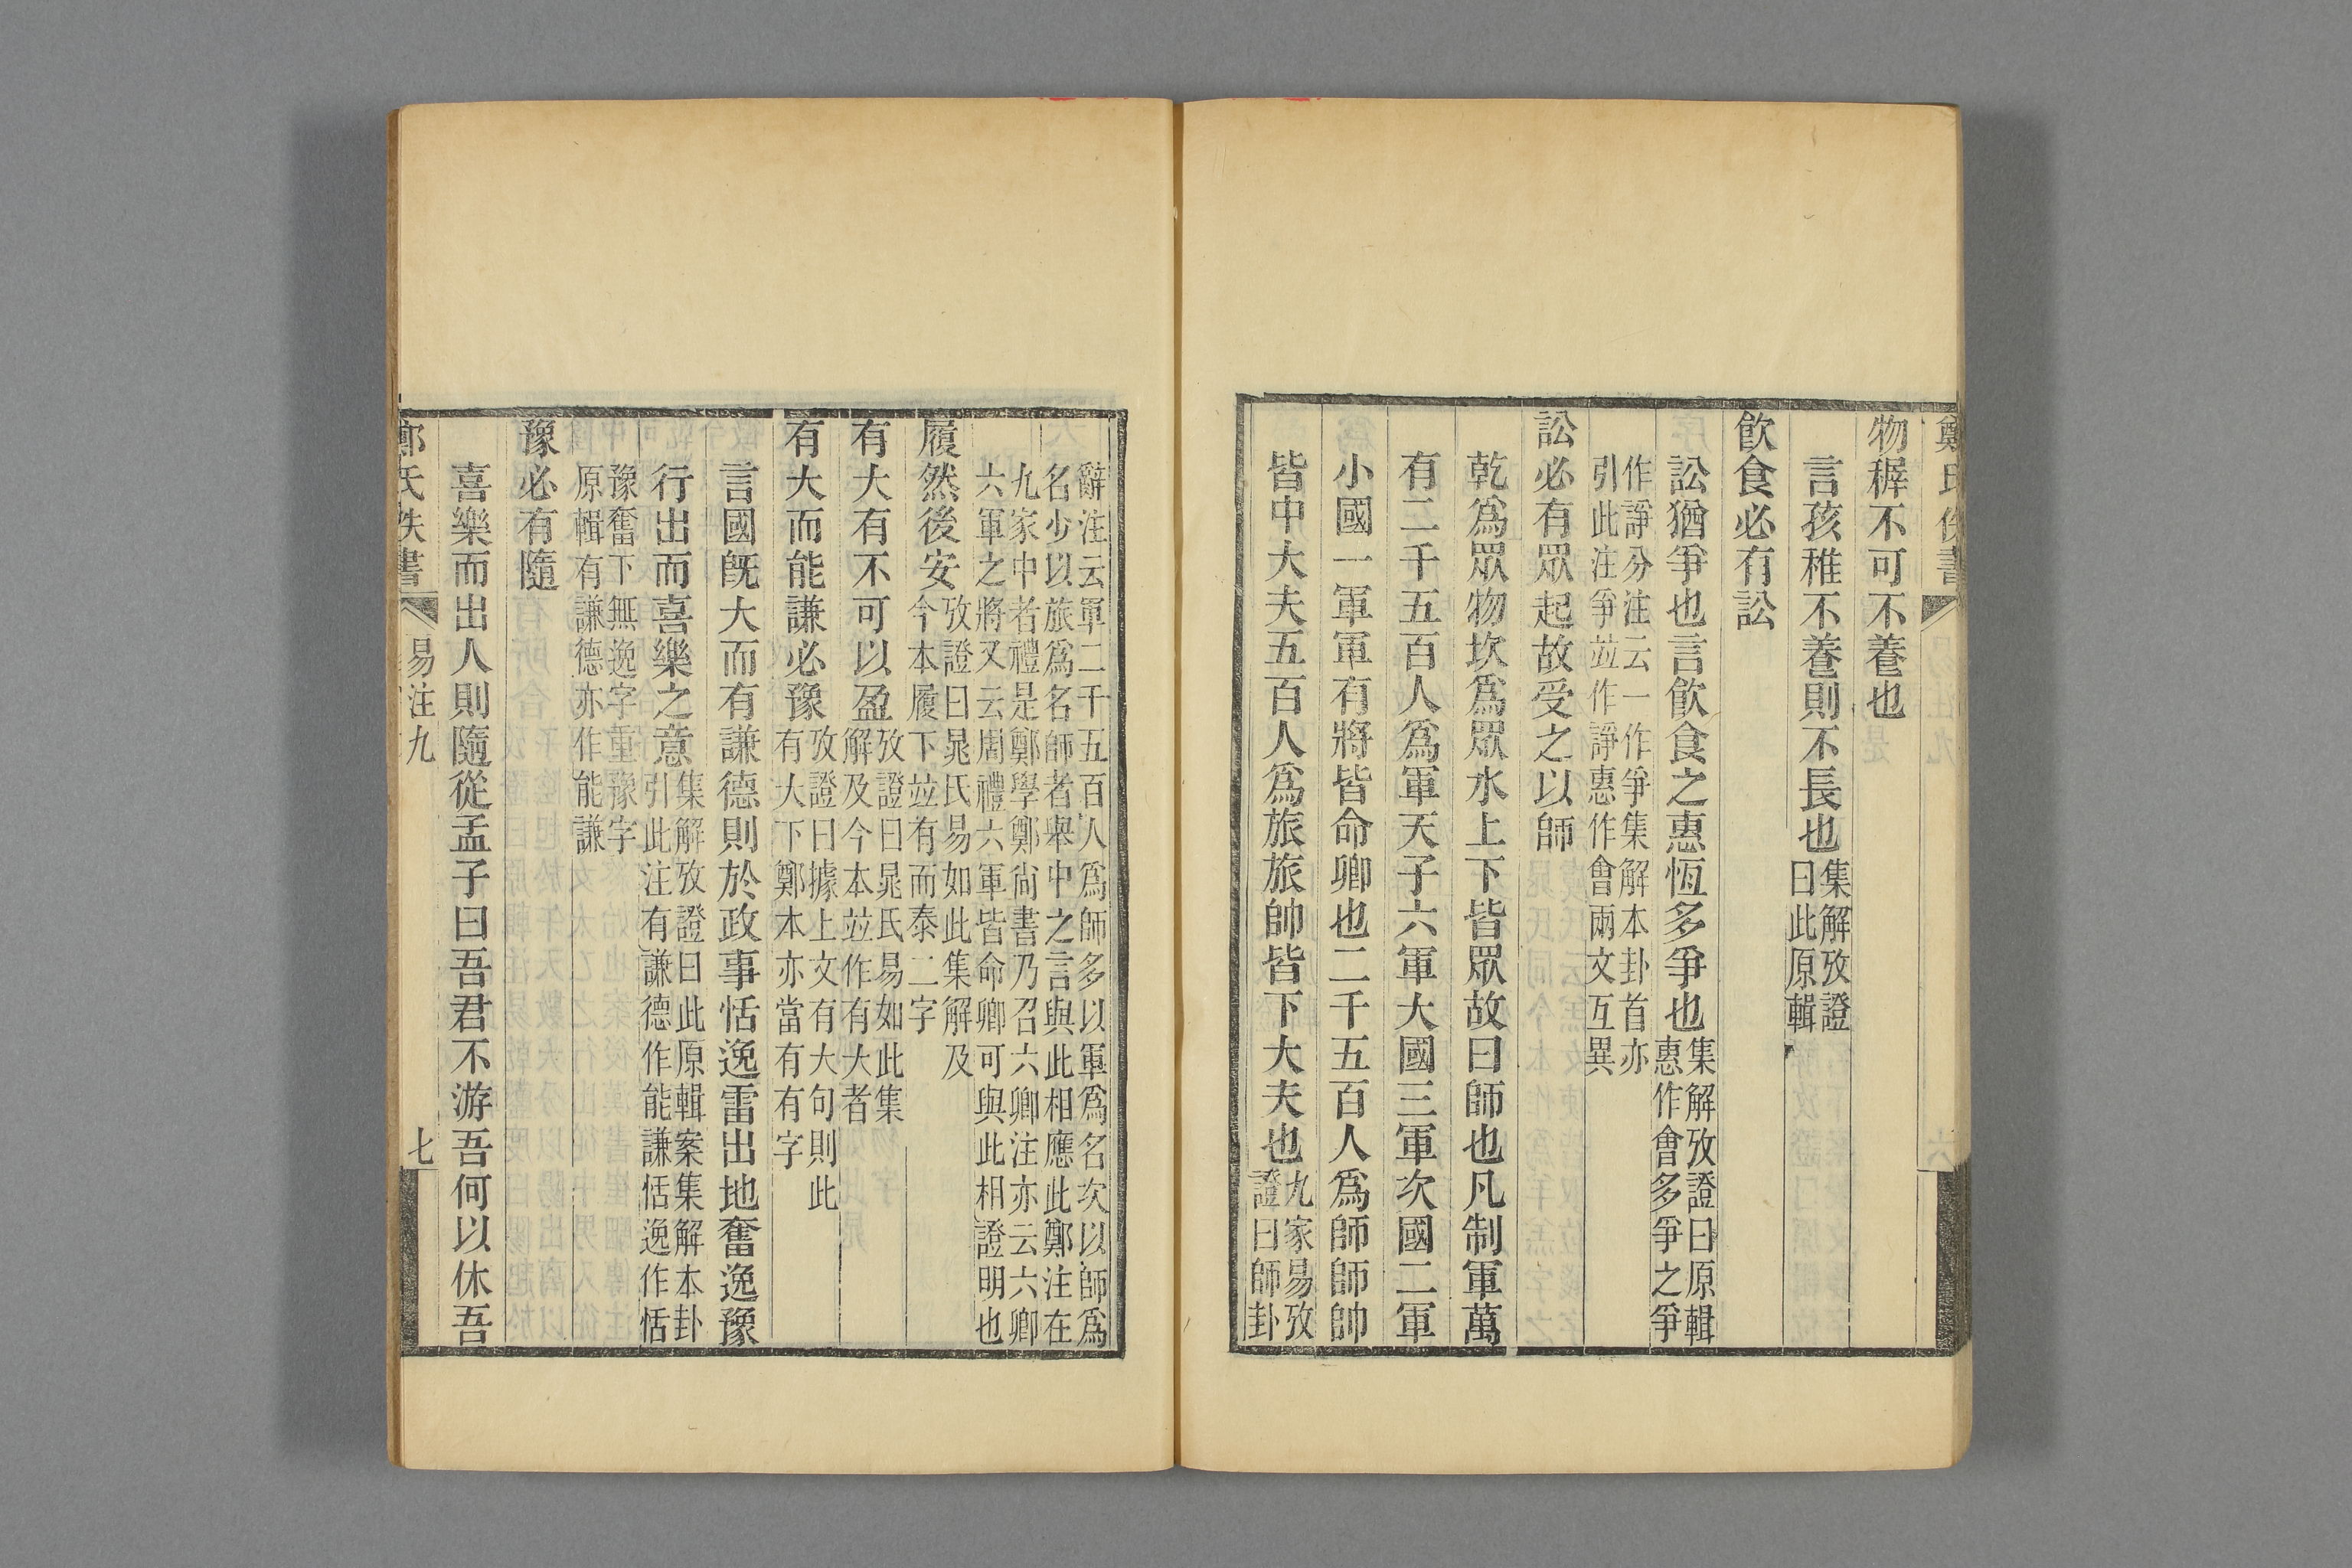 鄭氏佚書
物穉不可不養也
言孩稚不養則不長也集解攷證
曰此原輯
飮食必有訟
訟猶爭也言飮食之惠恆多爭也集解攷證曰原輯
惠作會多爭之爭
作諍分注云一作爭集解本卦首亦
引此注爭竝作諍惠作會兩文互異
訟必有眾起故受之以師
乾爲眾物坎爲眾水上下皆眾故曰師也凡制軍萬
有二千五百人爲軍天子六軍大國三軍次國二軍
小國一軍軍有將皆命卿也二千五百人爲師師帥
皆中大夫五百人爲旅旅帥皆下大夫也九家易攷
證曰師卦
辭注云軍二千五百人爲師多以軍爲名次以師爲
名少以旅爲名師者舉中之言與此相應此鄭注在
九家中者禮是鄭學鄭尙書乃召六卿注亦云六卿
六軍之將又云周禮六軍皆命卿可與此相證明也
履然後安攷證曰晁氏易如此集解及
今本履下竝有而泰二字
有大有不可以盈攷證曰晁氏易如此集
解及今本竝作有大者
有大而能謙必豫攷證曰據上文有大句則此
有大下鄭本亦當有有字
言國旣大而有謙德則於政事恬逸雷出地奮逸豫
行出而喜樂之意集解攷證曰此原輯案集解本卦
引此注有謙德作能謙恬逸作恬
豫奮下無逸字重豫字
原輯有謙德亦作能謙
豫必有隨
喜樂而出人則隨從孟子曰吾君不游吾何以休吾
鄭氏佚書
易注九
七